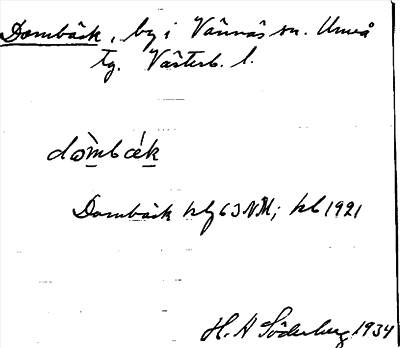 Dombäck, by i Vännäs sn. Umeå
tg. Västerb. l.
dòmbǽk
Dombäck hfl 63 NM; kb 1921
H. A Söderberg 1934